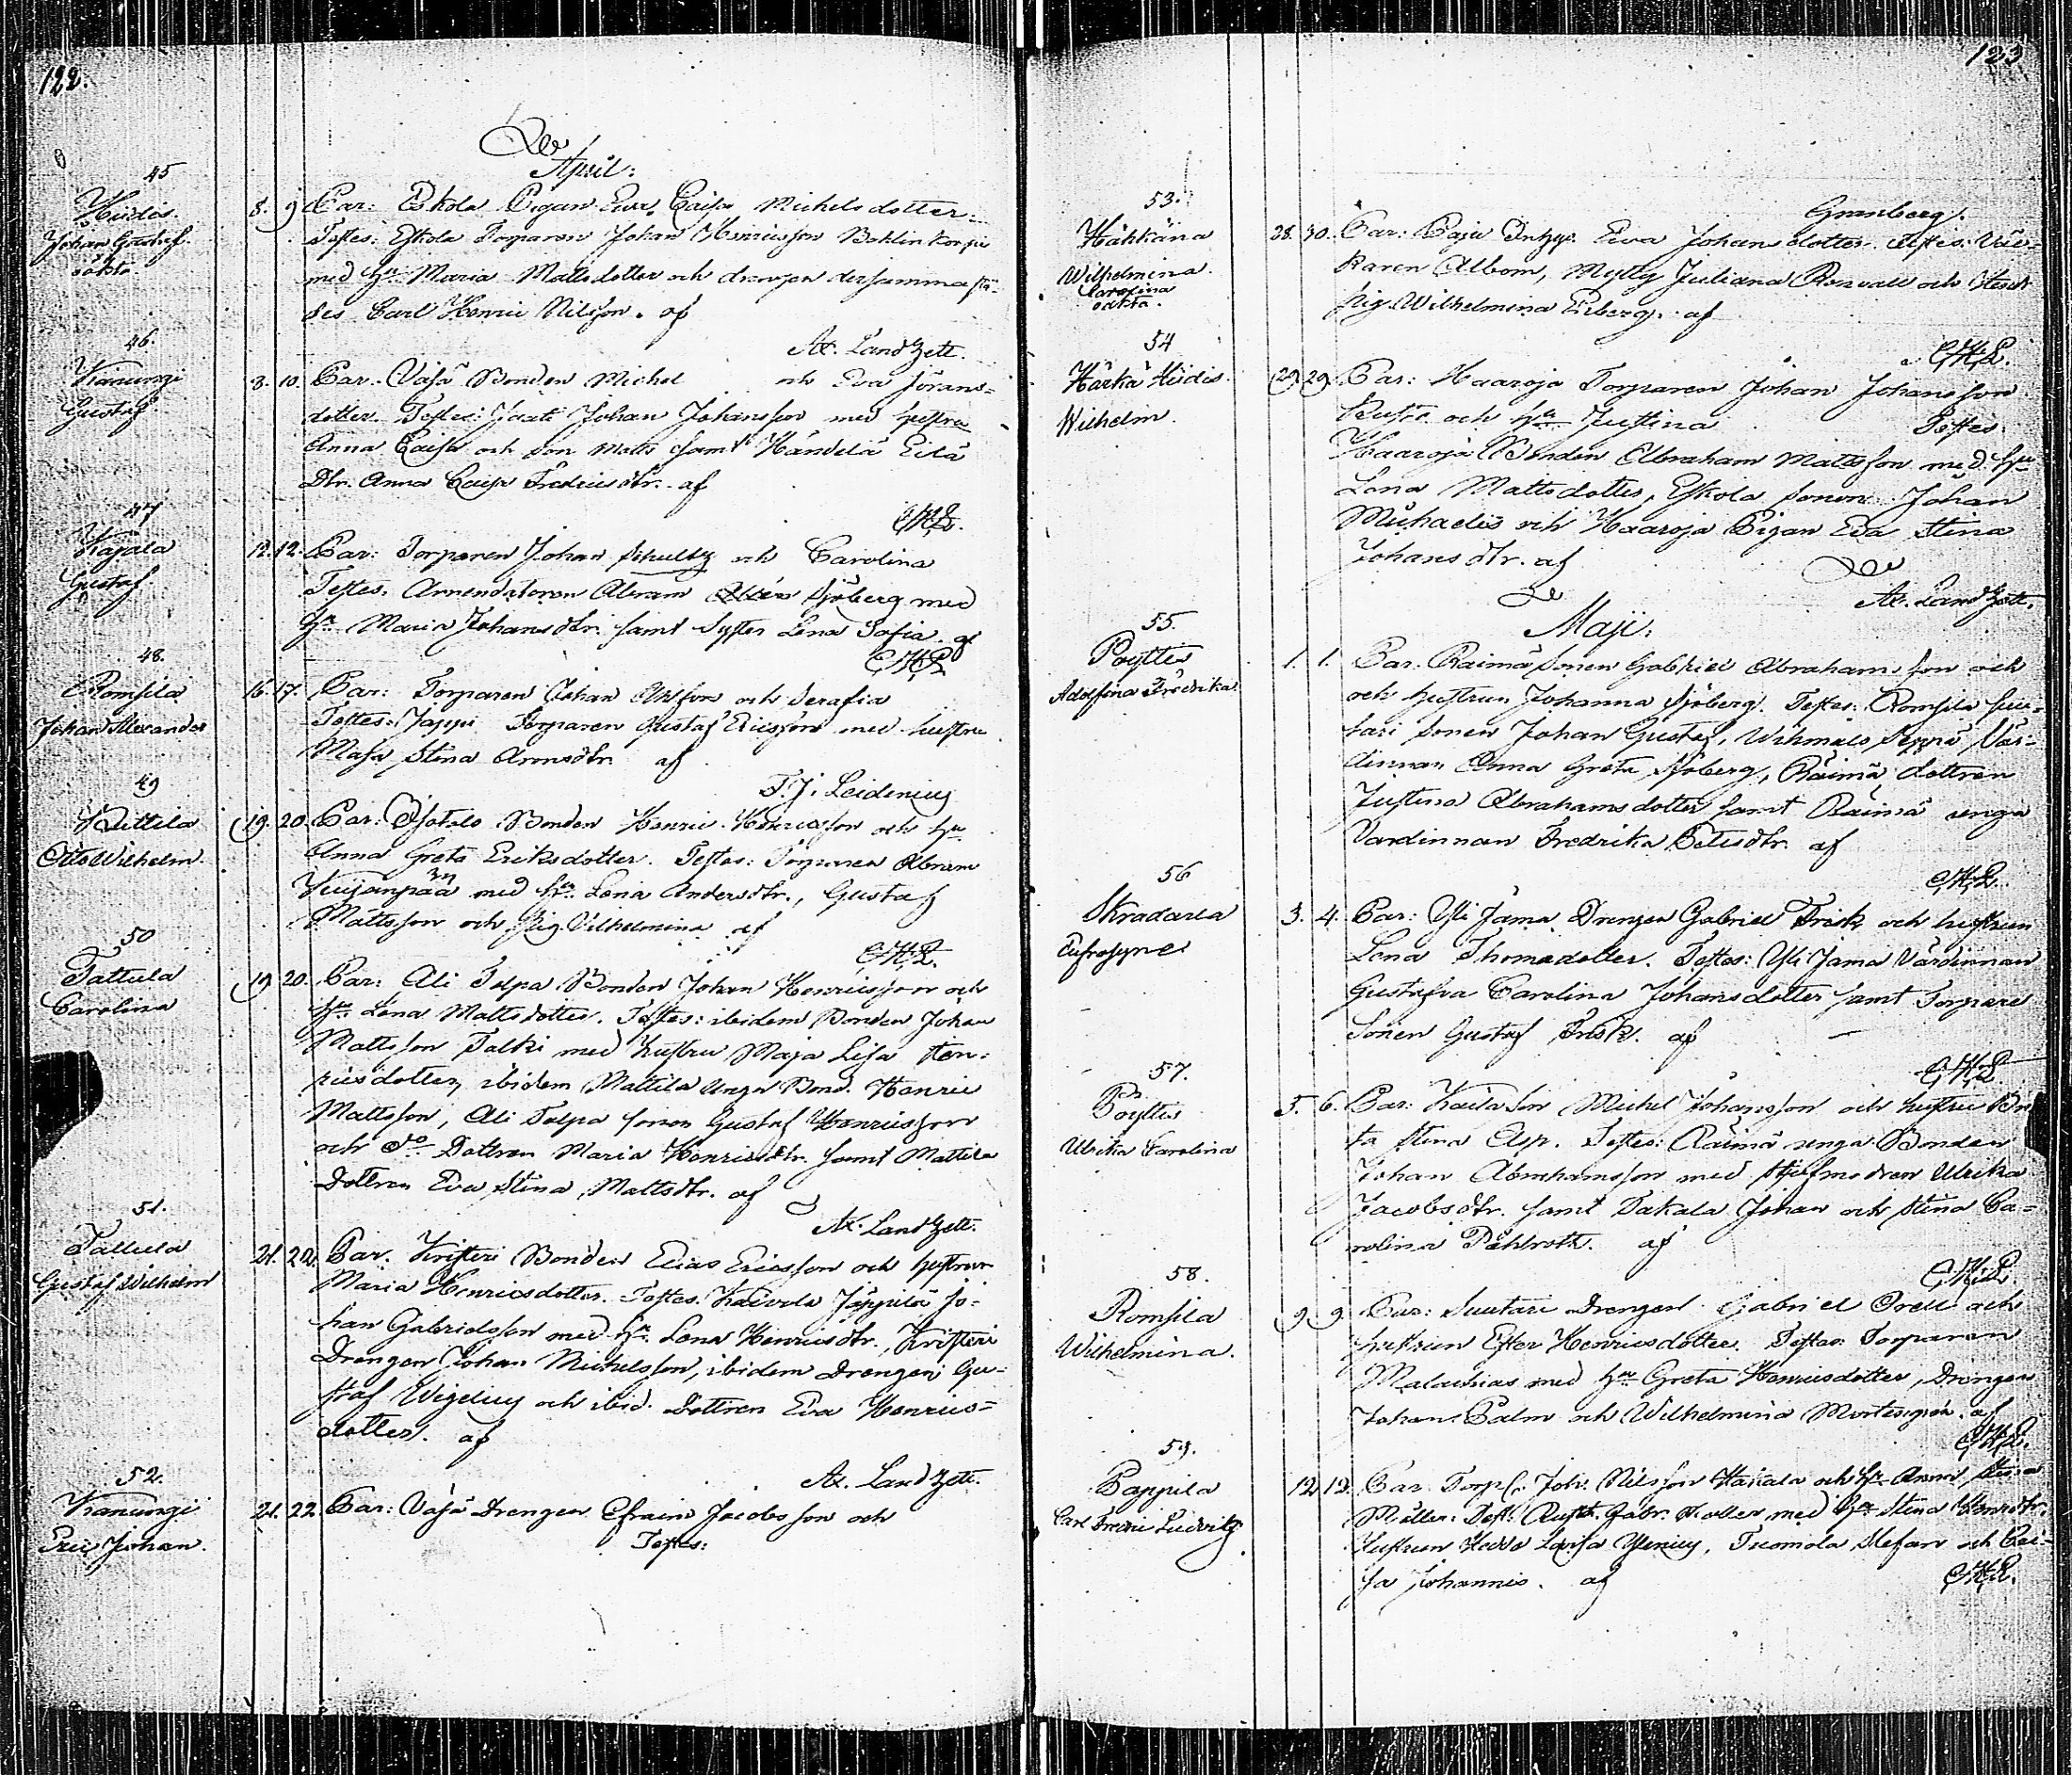 122.
April:
45
Heidis.
Johan Gustaf
oäkta
8. 9 Par: Eskola Pigan Eva Caisa Michelsdotter.
Testes: Eskola Torparen Johan Henricsson Bohlin
med hu Maria Mattsdotter och drengen dersammastä-
des Carl Henric Nilsson. af
Ax. Landzett.
46.
Kanungi
Gustaf
8. 10. Par: Väsä Bonden Michel och Eva Jörans-
dotter. Testes: Johan Johansson med hustru
Anna Caisa och son Matts samt Händelä
Dtr. Anna Caisa Fredricsdtr. af
47
Kajala
Gustaf
12. 12. Par: Torparen Johan Schultz och Carolina
Testes. Arrendatoren Abram Sjöberg med
hu Maria Johansdtr. samt Syster Lena Sofia. af
48.
Romsila
Johan Alexander
16. 17. Par: Torparen Johan och Serafia
Testes: Jappi Torparen Gustaf Ericsson med hustru
Maja Stina af
F. J. Leidenius
49
Kittilä
Otto Wilhelm.
19. 20. Par: Bonden Henric Henricsson och hu
Anna Greta Eriksdotter. Testes: Torparen Abram
med hu Lena Andersdtr., Gustaf
Mattsson och Pig. Vilhelmina af
50
Tattula
Carolina
19 20. Par: Ali Talpa Bonden Johan Henricsson och
hu Lena Mattsdotter. Testes: ibidem Bonden Johan
Mattsson Talki med hustru Maja Lisa Hen-
ricsdotter, ibidem Mattila unga Bond. Henric
Mattsson, Ali Talpa sonen Gustaf Henricsson
och Do Dottren Maria Henricsdtr. samt Mattila
Dottren Eva Stina Mattsdtr. af
Ax. Landzett.
51.
Tattula
Gustaf Wilhelm
21. 22. Par: Kristeri Bonden Elias Ericsson och hustrun
Maria Henricsdotter. Testes. Jäppilä Jo-
han Gabrielsson med hu Lena Henricsdtr., Kristeri
Drengen Johan Michelsson, ibidem Drengen Gu-
staf Wigelius och ibid. Dottren Eva Henrics-
dotter. af
Ax. Landzett.
52.
Kanungi
Eric Johan.
21. 22. Par: Väsä Drengen Efraim Jacobsson och
Testes:
123
53.
Hähkänä
Wilhelmina
Carolina
oäkta.
Grenberg.
28. 30. Par: Paju Eva Johansdotter. Testes:
karen Albom, Juliana Rosvall och
pig. Wilhelmina af
C.H.L.
54
Härkä Heidis.
Wilhelm.
29 29. Par: Haaroja Torparen Johan Johansson
och hu Justina Testes:
Haaroja Bonden Abraham Mattsson med hu
Lena Mattsdotter, Eskola sonen Johan
Michaelis och Haaroja Pigan Eva Stina
Johansdtr. af
Ax. Landzett.
Maji:
55.
Pöyttis
Adolfina Fredrika.
1. 1. Par: Raimä sonen Gabriel Abrahamsson och
och hustrun Johanna Sjöberg. Testes: Romsila
sonen Johan Gustaf, Seppä Vär-
dinnan Anna Greta Sjöberg, Raimä dottren
Justina Abrahamsdotter samt Raimä unga
Vardinnan Fredrika af
C.H.L.
56
Skradarla
Eufrosyne
3. 4. Par: Yli Jama Drengen Gabriel Frisk och hustrun
Lena Thomasdotter. Testes: Yli Jama Värdinnan
Gustafva Carolina Johansdotter samt Torpare
Sonen Gustaf Frisk. af
C.H.L.
57.
Pöyttis
Ulrika Carolina
5. 6. Par: Michel Johansson och hustru
ta Stina Asp. Testes: Raimä unga Bonden
Johan Abrahamsson med styfmodren Ulrika
Jacobsdtr. samt Johan och Stina Ca-
rolina Påhlroth. af
C.H.L.
58.
Romsila
Wilhelmina.
9 9. Par: Suutari Drengen Gabriel och
hustrun Ester Henricsdotter. Testes: Torparen
Malachias med hu Greta Henricsdotter, Drengen
Johan Palm och Wilhelmina af
C.H.L.
59.
Pappila
Carl Fredric Ludvig
12 12. Par. Torp. Joh. Nilsson och hu Anna Stina
Möller. med hu Stina Henrsdtr.
Hustrun Hedda Lovisa Tuomola Stefan och Cai-
sa Johannis. af
C.H.L.